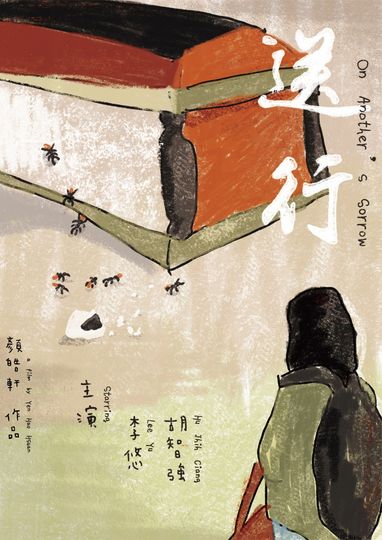 送行
On Another's Sorrow
Starring
主演
Hu Jhih Ciang
胡智強
Lee Yo
李悠
a film by Yen Hao Hsuan
顏皓軒 作品